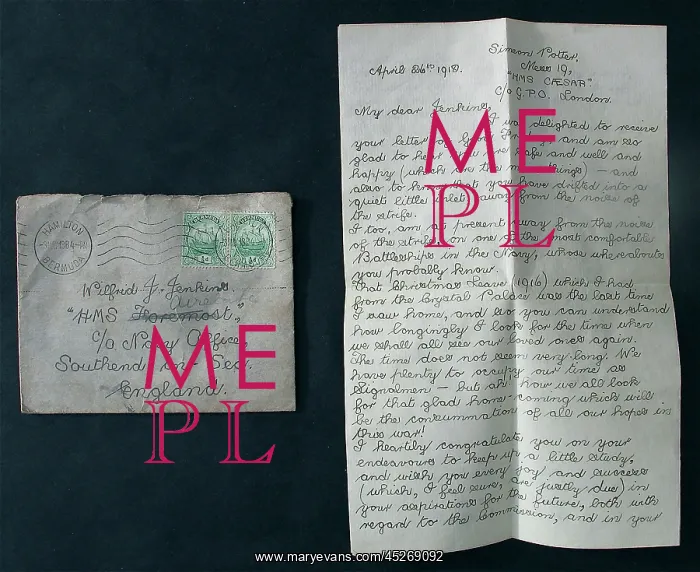 HAMILTON
BERMUDA
Wilfrid J. Jenkins
"HMS Foremost",
c/o Navy Office,
Southend on Sea.
England.
Simeon Potter,
Mess 19,
April 26th 1918.
"HMS CÆSAR"
c/o G.P.O. London.
My dear Jenkins,
I was delighted to receive
your letter and am so
glad to hear you are safe and well and
happy (which are the main things) — and
also to hear that you have drifted into a
quiet little inlet away from the noise of
the strife.
I too, am at present away from the noise
of the strife on one of the most comfortable
Battleships in the Navy, whose whereabouts
you probably know.
That Christmas Leave (1916) which I had
from the Crystal Palace was the last time
I saw home, and so you can understand
how longingly I look for the time when
we shall all see our loved ones again.
The time does not seem very long. We
have plenty to occupy our time as
Signalmen — but ah! how we all look
for that glad home-coming which will
be the consummation of all our hopes in
this war!
I heartily congratulate you on your
endeavours to keep up a little study,
and wish you every joy and success
(which, I feel sure, are justly due) in
your aspirations for the future, both with
regard to the Commission, and in your
ME
PL
ME
PL
www.maryevans.com/45269092